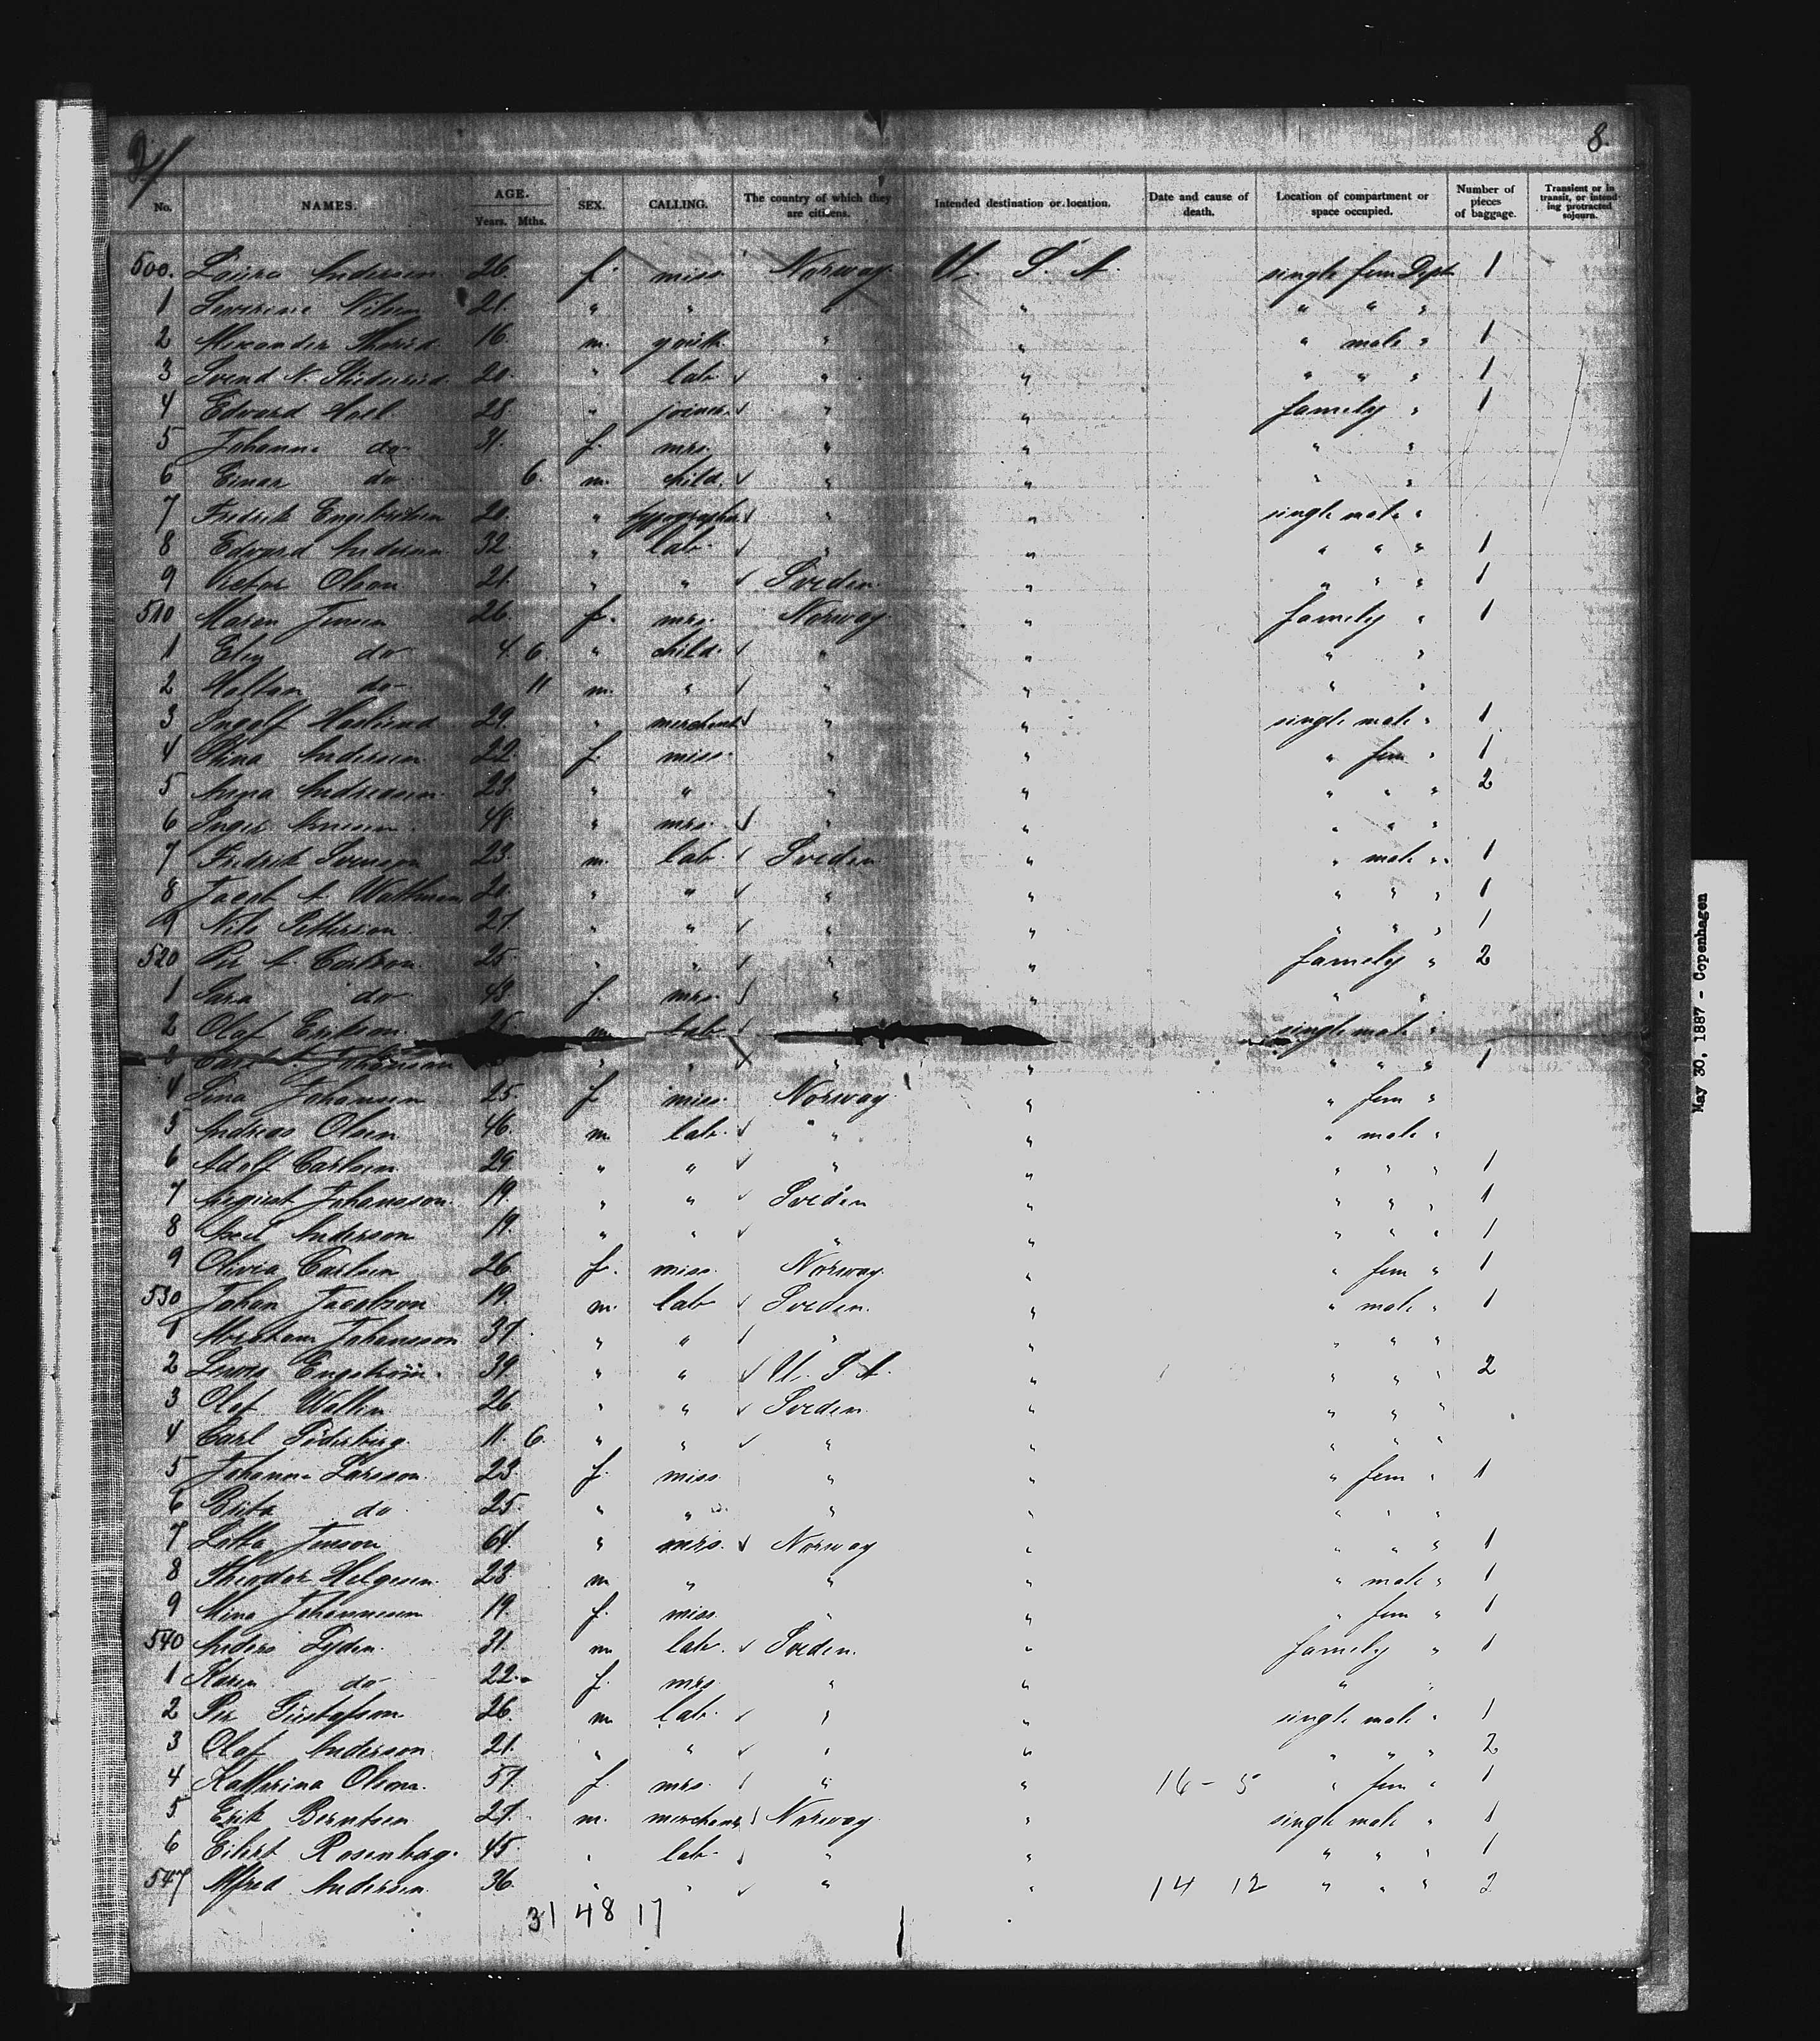 2/ 8.
No. NAMES. AGE. Years. Mths. SEX. CALLING. The country of which they are citizens. Intended destination or location. Date and cause of death. Location of compartment or space occupied. Number of pieces of baggage. Transient or in transit, or intending protracted sojourn.
500. Laura Andersen 26. f. miss. Norway. U. S. A. single fem Dept 1
1 Severine Nilsen 21. " " " " " " "
2 Alexander 16. m. youth " " " male " 1
3 Svend N. 20. " lab. " " " " " 1
4 Edvard Hoel 28. " joiner " " family " 1
5 Johanne do 31. f. mrs. " " " "
6 Einar do 6. m. child. " " " "
7 Fredrik Engebretsen 20. " typographer " " single male "
8 Edvard Andersen 32. " lab. " " " " " 1
9 Victor Olson 21. " " Sveden. " " " " 1
510 Maren Jensen 26. f. mrs. Norway. " family " 1
1 Elen do 4 6. " child. " " " "
2 Halfdan do 11 m. " " " " "
3 Ingolf Haslund 29. " merchant " " single male " 1
4 Stina Andersen 22. f. miss. " " " fem " 1
5 Anna Andreasen 23. " " " " " " " 2
6 Inger 48. " mrs. " " " " "
7 Fredrik Svenson 23. m. lab. Sveden " " male " 1
8 Jacob A. Waltman 20. " " " " " " " 1
9 Nils Petterson 27. " " " " " " " 1
520 Per A. Carlson 25. " " " " family " 2
1 Sara do 43. f. mrs. " " " "
2 Olof Erikson 25. m. lab. single male "
3 Johanson " " " " " " " 1
4 Lina Johansen 25. f. miss. Norway " " fem "
5 Andreas Olsen 46. m. lab. " " " male "
6 Adolf Carlsen 29. " " " " " " " 1
7 August Johansson. 19. " " Sveden " " " " 1
8 Axel Anderson 19. " " " " " " " 1
9 Olivia Carlsen 26. f. miss. Norway. " " fem " 1
530 Johan Jacobson 19. m. lab Sveden. " " male " 1
1 Abraham Johansson 37. " " " " " " "
2 Lewis Engström. 39. " " U. S. A. " " " " 2
3 Olof Wallin 26. " " Sveden. " " " "
4 Carl Söderberg. 11. 6. " " " " " " "
5 Johanna Larsson. 23. f. miss " " " fem " 1
6 Brita do 25. " " " " " " "
7 Lotta Jonson 64. " mrs. Norway " " " " 1
8 Theodor Helgesen 23. m " " " " male " 1
9 Mina Johannesen 19. f. miss. " " " fem " 1
540 Anders Lyden. 31. m lab. Sveden. " family " 1
1 Karen do 22. f. mrs " " " "
2 Per Gustafsson 26. m lab. " " single male " 1
3 Olof Anderson 21. " " " " " " " 2
4 Katherina Olsson. 57. f. mrs. " " 16 - 5 " fem " 1
5 Erik Berntsen 27. m. merchant Norway " single male " 1
6 Eilert Rosenberg. 45. " lab. " " " " " 1
547 Alfred Andersen. 36. " " " " 14 12 " " " 2
31 48 17
May 30, 1887 - Copenhagen